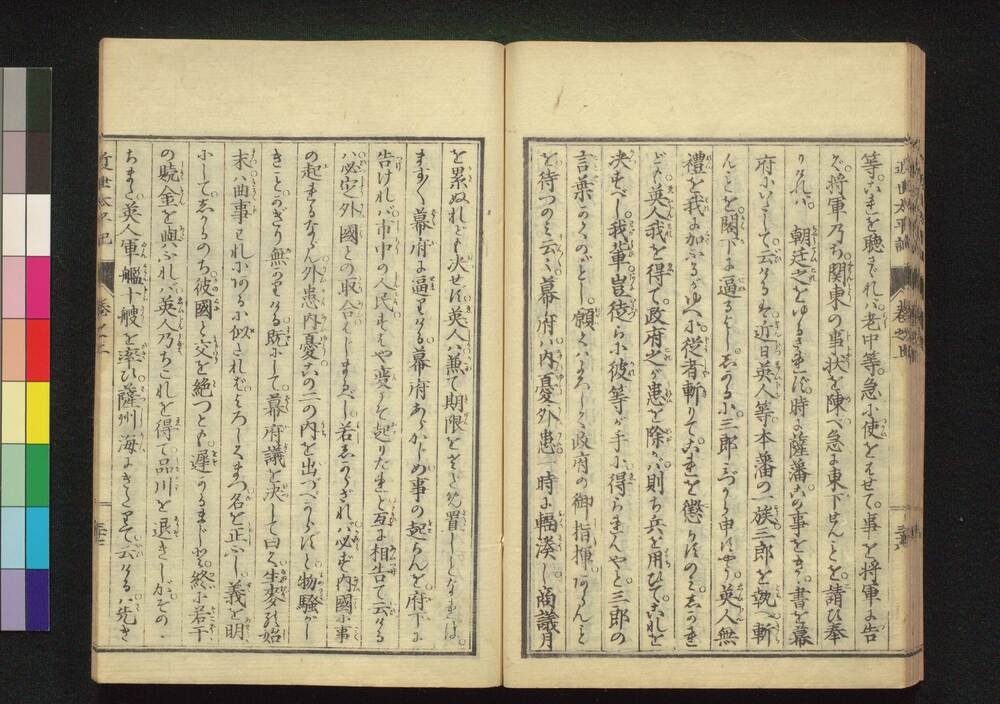 近世太平記 巻之
等。これを聴きければ老中等。急に使をはせて。事を将軍に告
ぐ将軍乃ち関東の事状を陳べ急に東下せんことを請ひ奉
りければ。朝廷之をゆるされず。時に薩藩この事をきゝ書を幕
府にいたして。云ける は近日英人等本藩の一族三郎を執へ斬
んことを閣下に逼るよししかるに三郎みづから申にやう英人無
禮を我に加ふるがゆへに従者斬りてこれを懲りすのみしかれ
ども英人我を得て。政府之が患を除かバ則ち兵を用ひてこれを
决すべし。我輩豈徒らに彼等が手に得られんやと三郎の
言葉かくのごとし。願くハよろしく政府の御指揮あらんこと
を待つのミ云々幕府ハ内憂外患一時に輻湊し商議月
を累ぬれども决せず英人ハ兼て期限をさだめ置しことなれば。
ますます幕府に逼りける。幕府あらかじめ事の起らんと府下に
告ければ市中の人民もはや変こそ起りたれと互に相告て云ける
ハ必定外國との取合はじまるべし若しからざれバ必ず内國に事
の起れるならん外患内憂この二の内を出づべからずと物騒が
しきことかぎり無かりける既にして幕府議を决して曰く生麥の始
末ハ曲事われにあるに似たればよろしくまづ名を正ふし義を明
にしてしかるのち彼國と交を絶つとも遅かるまじと。終に若干
の贖金を與ふれバ英人乃ちこれを得て品川を退きしがその
ちまた英人軍艦十艘を率ひ薩州海にきたりて云けるハ先き
近世太平記 巻之二